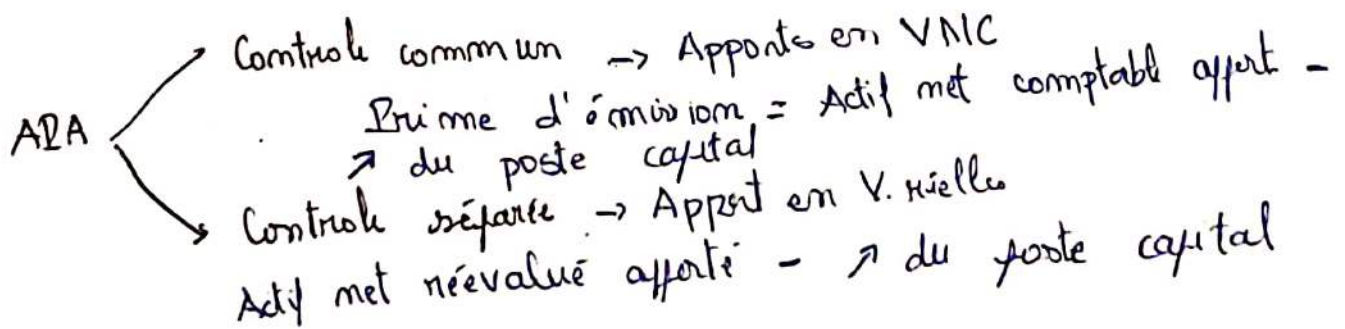 Controle commun → Apports en VNC
Prime d'émission = Actif net comptable apport -
↗ du poste capital
Controle séparée → Apport en V. réelles
Actif net réévalué apporté - ↗ du poste capital